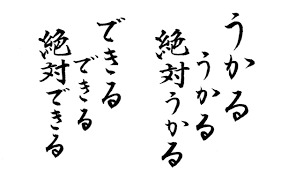 うかる
うかる
絶対うかる
できる
できる
絶対できる